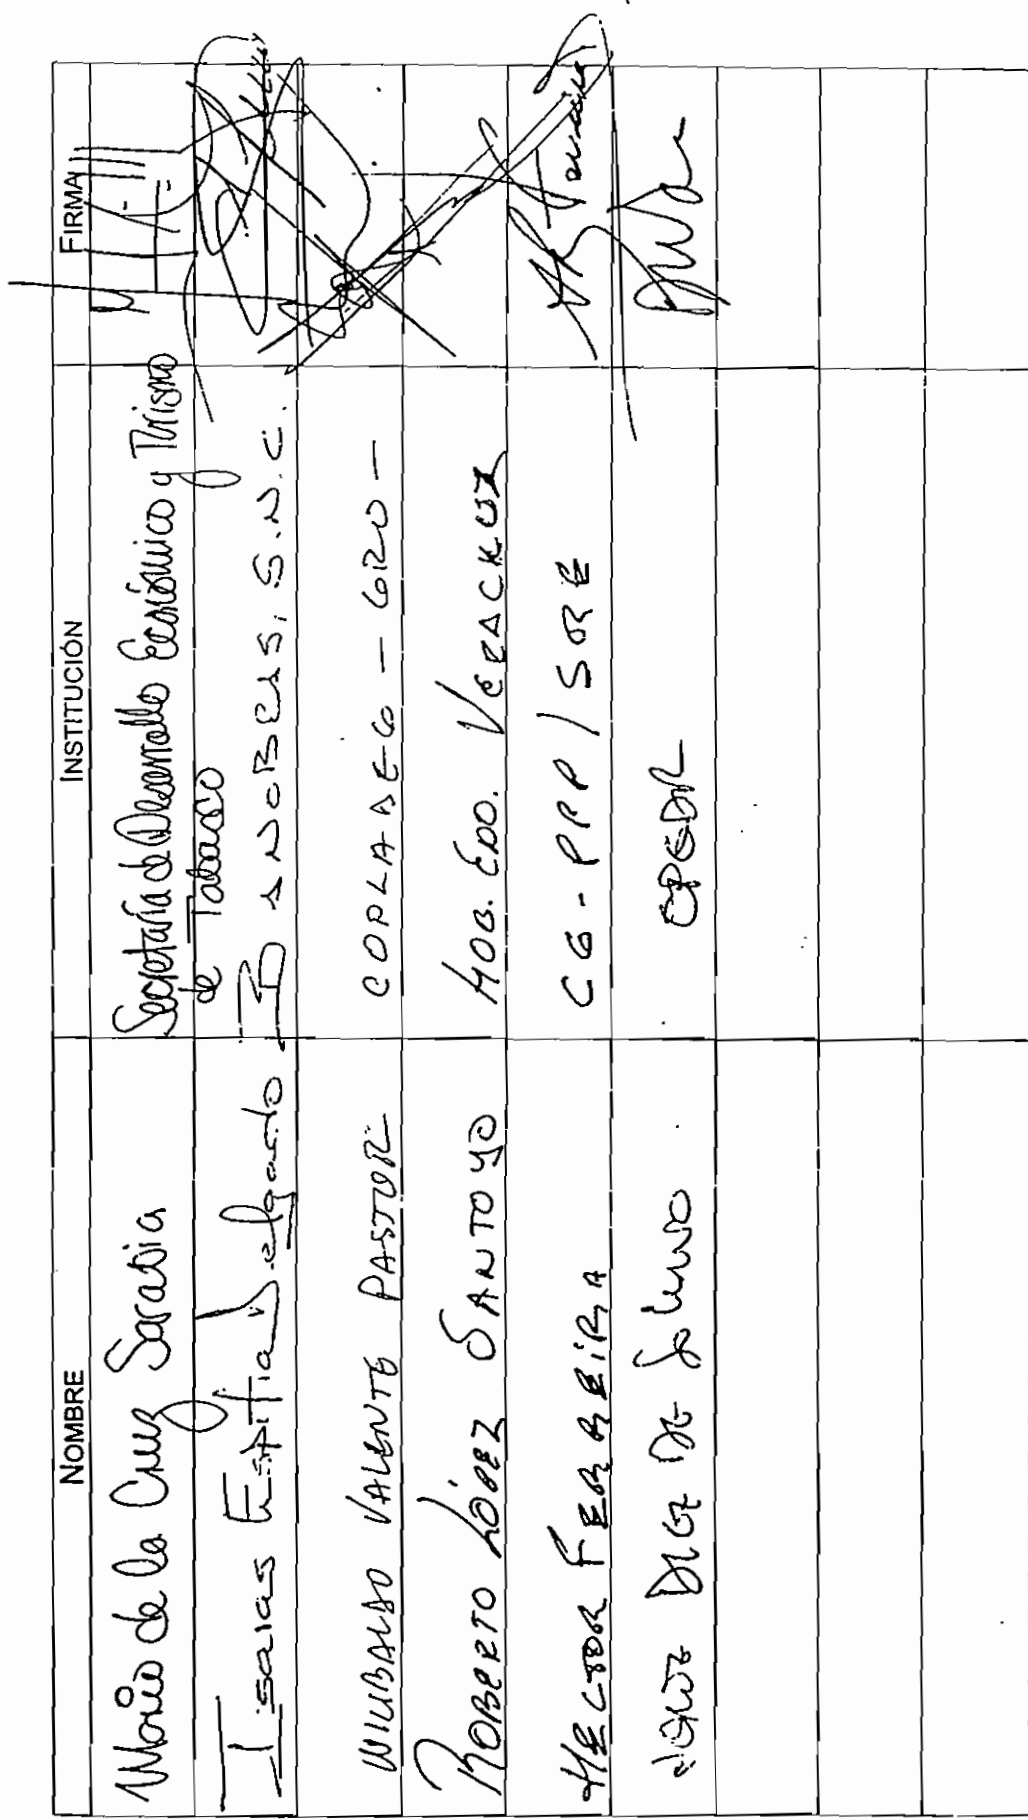 NOMBRE INSTITUCIÓN FIRMA
Mario de la Cruz Sarabia Secretaría de Desarrollo Económico y Turismo
de Tabasco
Isaias Espitia Delgado BANOBRAS, S.N.C.
WIUBALDO VALENTE PASTOR COPLADEG - GRO -
ROBERTO LÓPEZ SANTOYO GOB. EDO. VERACRUZ
HECTOR FERREIRA CG - PPP / SRE
DE